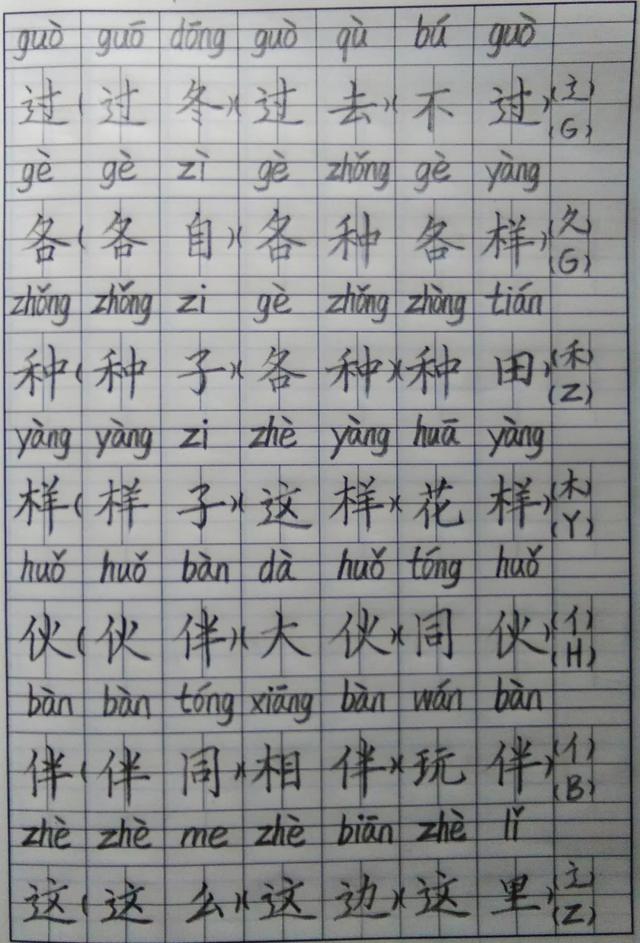 guò guō dōng guò qù bú guò
过(过冬)(过去)(不过)(辶)(G)
gè gè zì gè zhǒng gè yàng
各(各自)(各种各样)(夂)(G)
zhǒng zhǒng zi gè zhǒng zhòng tián
种(种子)(各种)(种田)(禾)(Z)
yàng yàng zi zhè yàng huā yàng
样(样子)(这样)(花样)(木)(Y)
huǒ huǒ bàn dà huǒ tóng huǒ
伙(伙伴)(大伙)(同伙)(亻)(H)
bàn bàn tóng xiāng bàn wán bàn
伴(伴同)(相伴)(玩伴)(亻)(B)
zhè zhè me zhè biān zhè lǐ
这(这么)(这边)(这里)(辶)(Z)